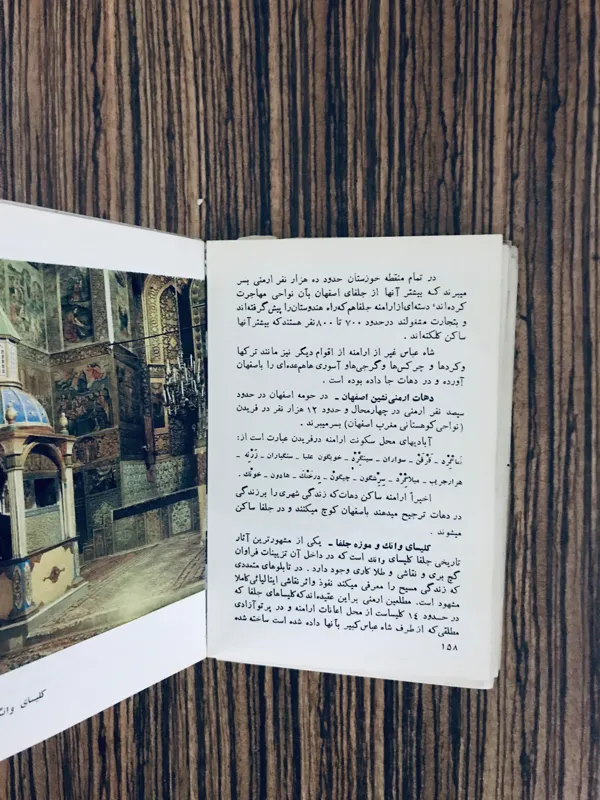 در تمام منطقه خوزستان حدود ده هزار نفر ارمنی بسر
میبرند که بیشتر آنها از جلفای اصفهان بآن نواحی مهاجرت
کرده‌اند؛ دسته‌ای‌ازارامنه جلفاهم‌که‌راه هندوستان‌را پیش‌گرفته‌اند
و بتجارت مشغولند درحدود ۷۰۰ تا ۸۰۰ نفر هستندکه بیشترآنها
ساکن کلکته‌اند.
شاه عباس غیر از ارامنه از اقوام دیگر نیز مانند ترکها
وکردها و چرکس‌ها وگرجی‌هاو آسوری هاهم‌عده‌ای را باصفهان
آورده و در دهات جا داده بوده است.
دهات ارمنی نشین اصفهان ـ در حومه اصفهان در حدود
سیصد نفر ارمنی در چهارمحال و حدود ۱۲ هزار نفر در فریدن
(نواحی‌کوهستانی مغرب اصفهان) بسرمیبرند.
آبادیهای محل سکونت ارامنه درفریدن عبارت است از:
سواران ـ خویگون علیا ـ سنگباران ـ زرنه ـ
هزارجریب ـ میلاگرد ـ چیگون ـ درختك ـ هادون ـ خونك.
اخیراً ارامنه ساکن دهات‌که زندگی شهری‌را برزندگی
در دهات ترجیح میدهند باصفهان کوچ میکنند و در جلفا ساکن
میشوند.
کلیسای وانك و موزه جلفا ـ یکی از مشهورترین آثار
تاریخی جلفا کلیسای وانك است که در داخل آن تزیینات فراوان
گچ بری و نقاشی و طلاکاری وجود دارد. در تابلوهای متعددی
که زندگی مسیح را معرفی میکند نفوذ واثرنقاشی ایتالیائی‌کاملا
مشهود است. مطلعین ارمنی براین عقیده‌اندکه‌کلیساهای جلفا که
در حدود ۱۴ کلیساست از محل اعانات ارامنه و در پرتوآزادی
مطلقی‌که ازطرف شاه عباس‌کبیر بآنها داده شده است ساخته شده
۱۵۸
کلیسای وانك